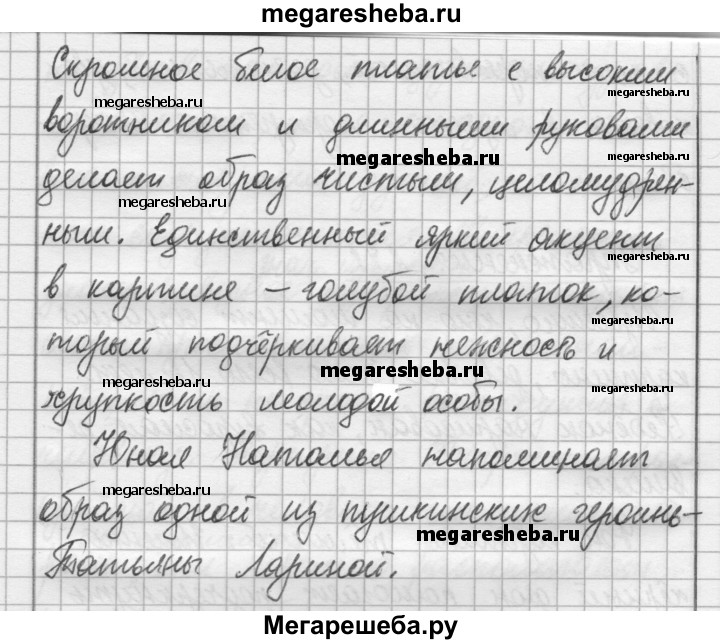 megaresheba.ru
Скромное белое платье с высоким
megaresheba.ru
megaresheba.ru
воротником и длинными рукавами
megaresheba.ru
megaresheba.ru
делает образ чистым, целомудрен-
megaresheba.ru
ным. Единственный яркий акцент
megaresheba.ru
в картине – голубой платок, ко-
megaresheba.ru
торый подчёркивает нежность и
megaresheba.ru
megaresheba.ru
megaresheba.ru
хрупкость молодой особы.
Юная Наталья напоминает
megaresheba.ru
образ одной из пушкинских героинь–
megaresheba.ru
Татьяны Лариной.
Мегарешеба.ру